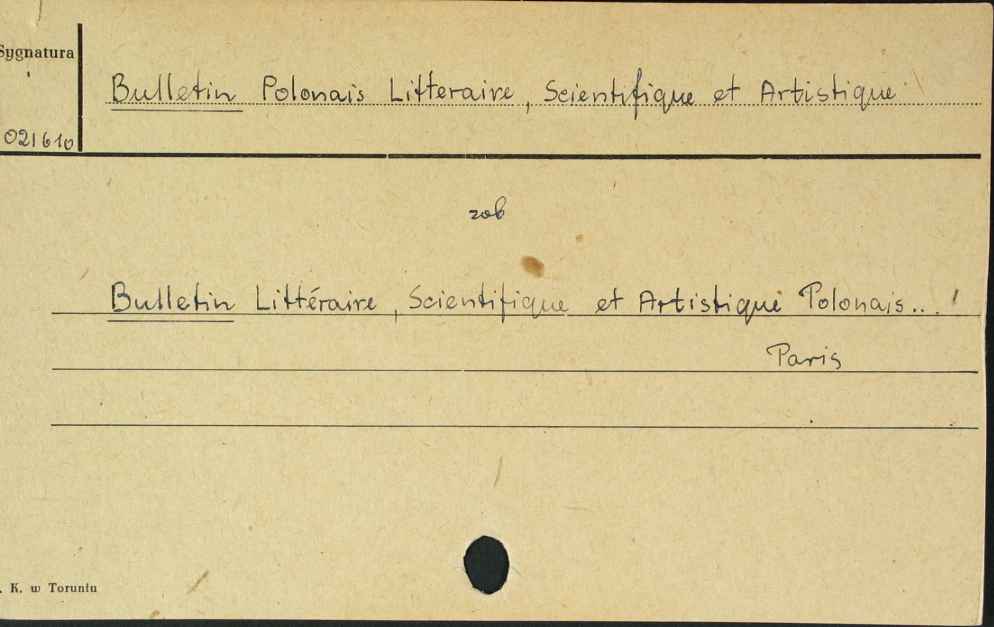 Sygnatura
Bulletin Polonais Litteraire, Scientifique et Artistique
021610
zob
Bulletin Littéraire, Scientifique et Artistique Polonais...
Paris
. K. w Toruniu